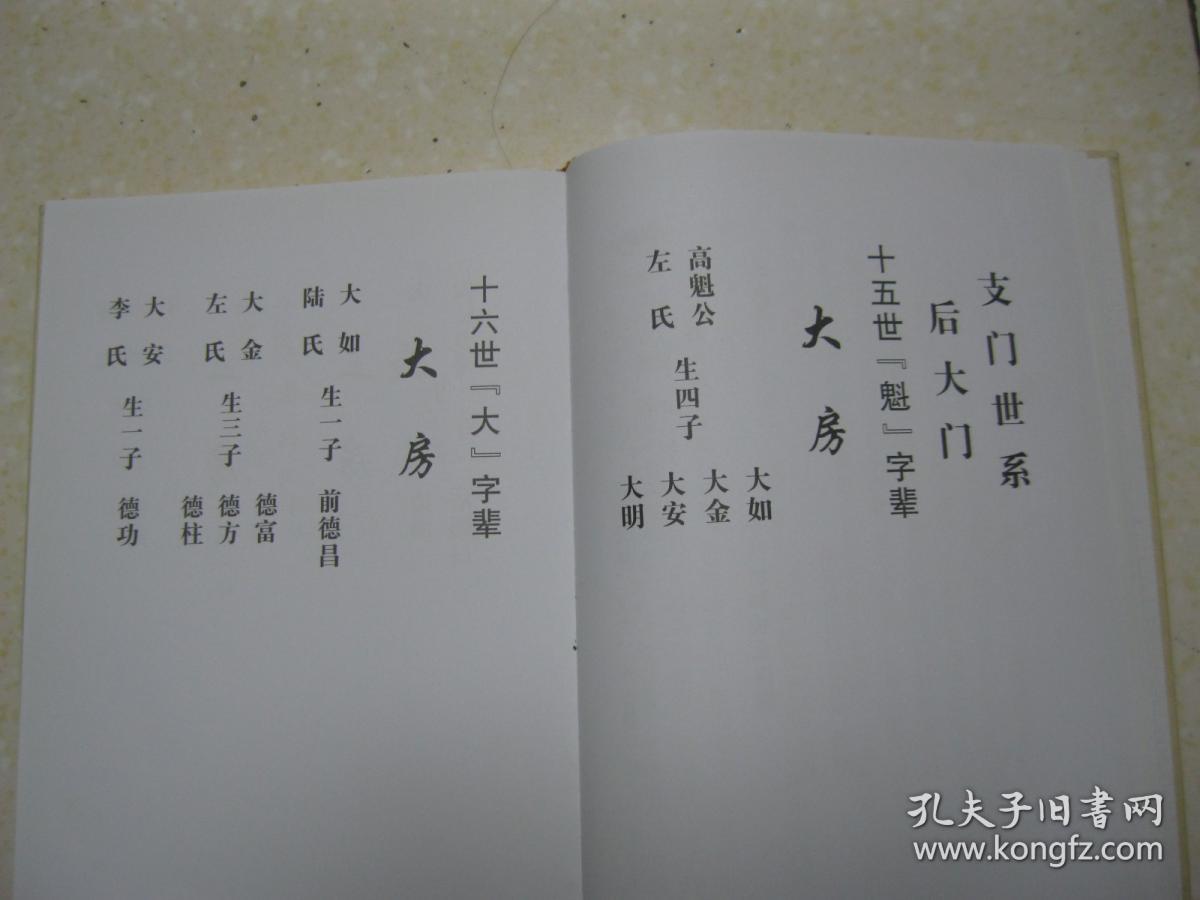 支门世系
后大门
十五世『魁』字辈
大房
高魁公
左氏
生四子
大如
大金
大安
大明
十六世『大』字辈
大房
大如
陆氏
生一子
前德昌
大金
左氏
生三子
德富
德方
德柱
大安
李氏
生一子
德功
孔夫子旧书网
www.kongfz.com